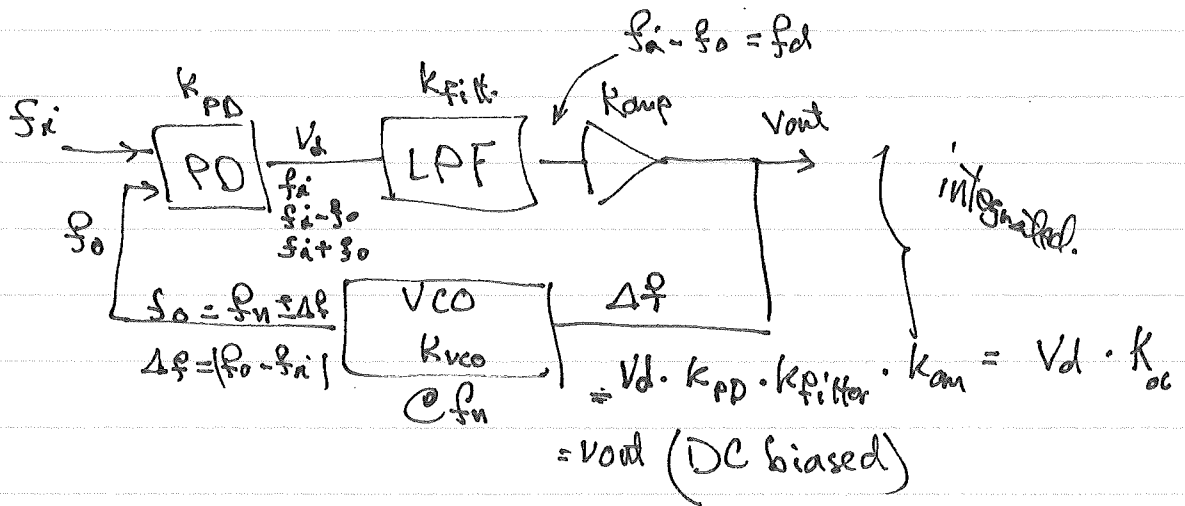 fi - fo = fd
KPD
Kfilt.
Kamp
Vout
fi
PD
Vd
LPF
fi
fi-fo
fi+fo
fo
integrated.
fo = fn ± Δf
VCO
Δf
Δf = |fo - fi|
KVCO
= Vd · KPD · Kfilter · Kam = Vd · Koc
@fn
= Vout (DC biased)